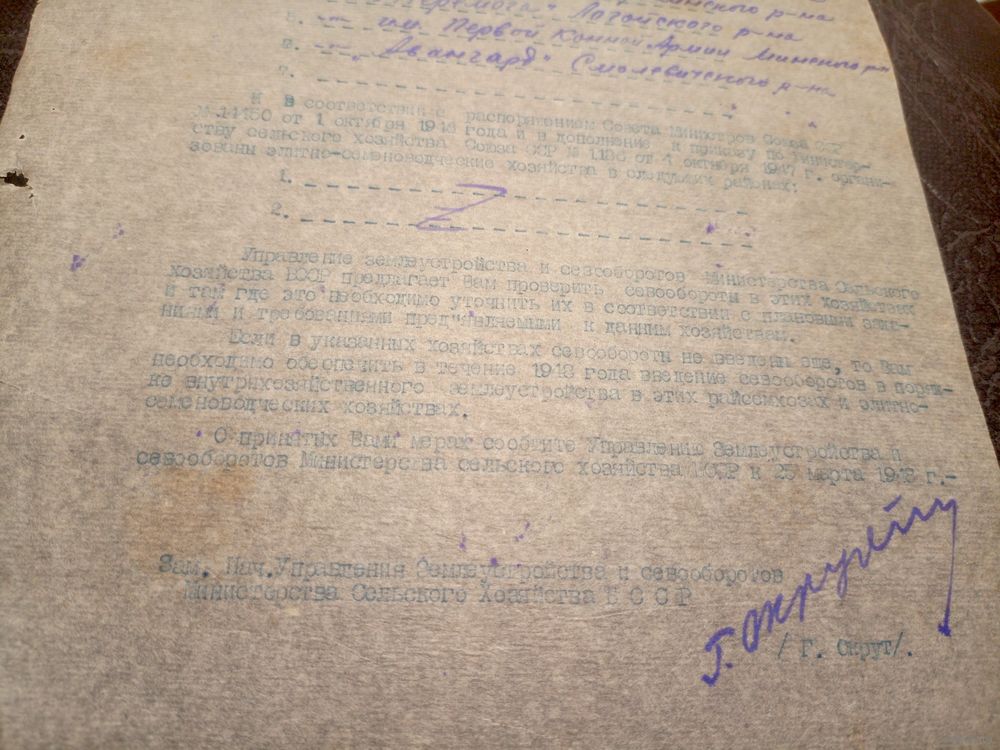 нского р-на
"Перемога" Логойского р-на
5. -"- им. Первой Конной Армии Минского р-на
6. -"- "Авангард" Смолевичского р-на
7.
И в соответствии с распоряжением Совета Министров Союза ССР
№ 14150 от 1 октября 1948 года и в дополнение к приказу по Министер-
ству сельского хозяйства Союза ССР № 1136 от 4 октября 1947 г. органи-
зованы элитно-семеноводческие хозяйства в следующих районах:
1.
2.
Управление землеустройства и севооборотов Министерства Сельского
хозяйства БССР предлагает Вам проверить севообороты в этих хозяйствах
и там где это необходимо уточнить их в соответствии с плановыми зада-
ниями и требованиями предъявляемыми к данным хозяйствам.
Если в указанных хозяйствах севообороты не введены еще, то Вам
необходимо обеспечить в течение 1948 года введение севооборотов в поряд-
ке внутрихозяйственного землеустройства в этих райсемхозах и элитно-
семеноводческих хозяйствах.
О принятых Вами мерах сообщите Управлению Землеустройства и
севооборотов Министерства сельского хозяйства БССР к 25 марта 1948 г.-
Зам. Нач. Управления Землеустройства и севооборотов
Министерства Сельского Хозяйства Б С С Р
Г. Окрут
/ Г. Окрут/.